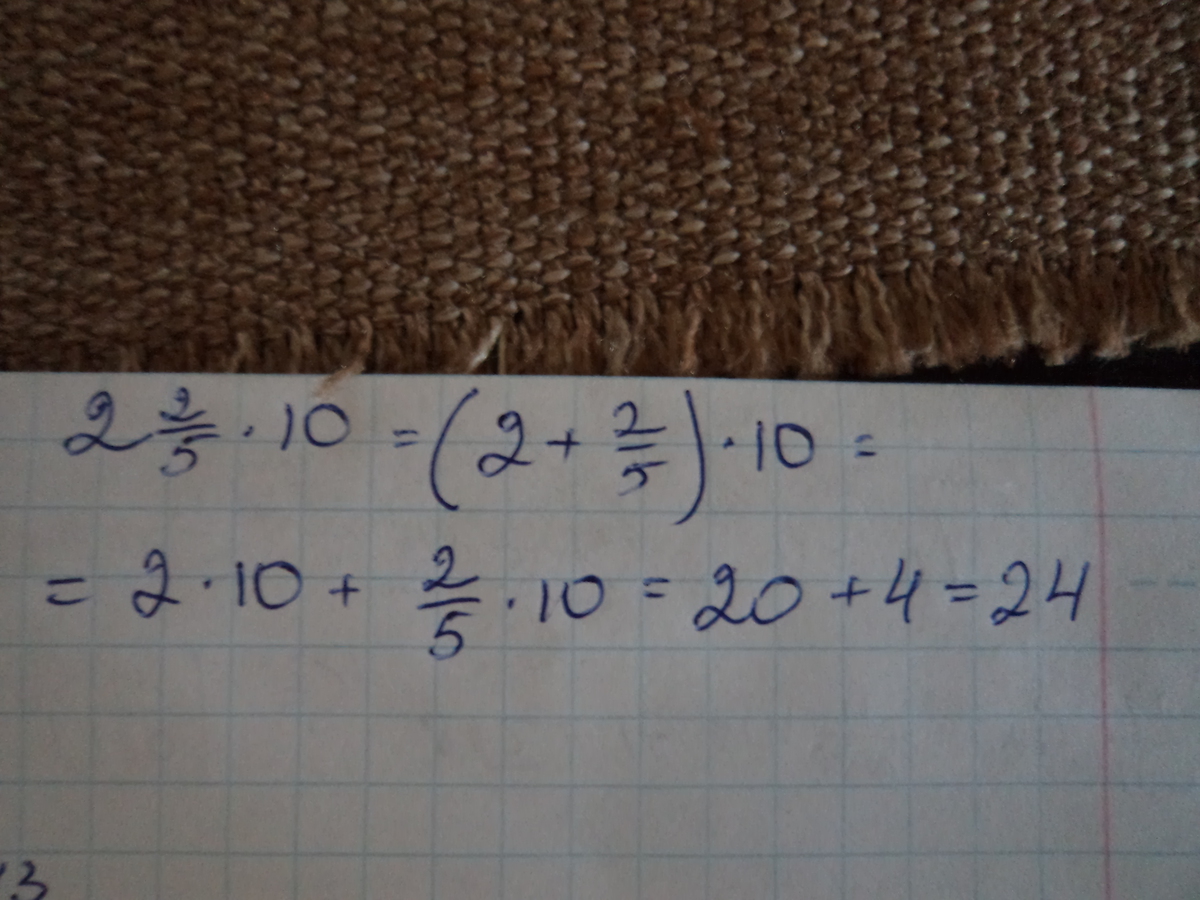 2 2/5 · 10 = (2 + 2/5) · 10 =
= 2 · 10 + 2/5 · 10 = 20 + 4 = 24